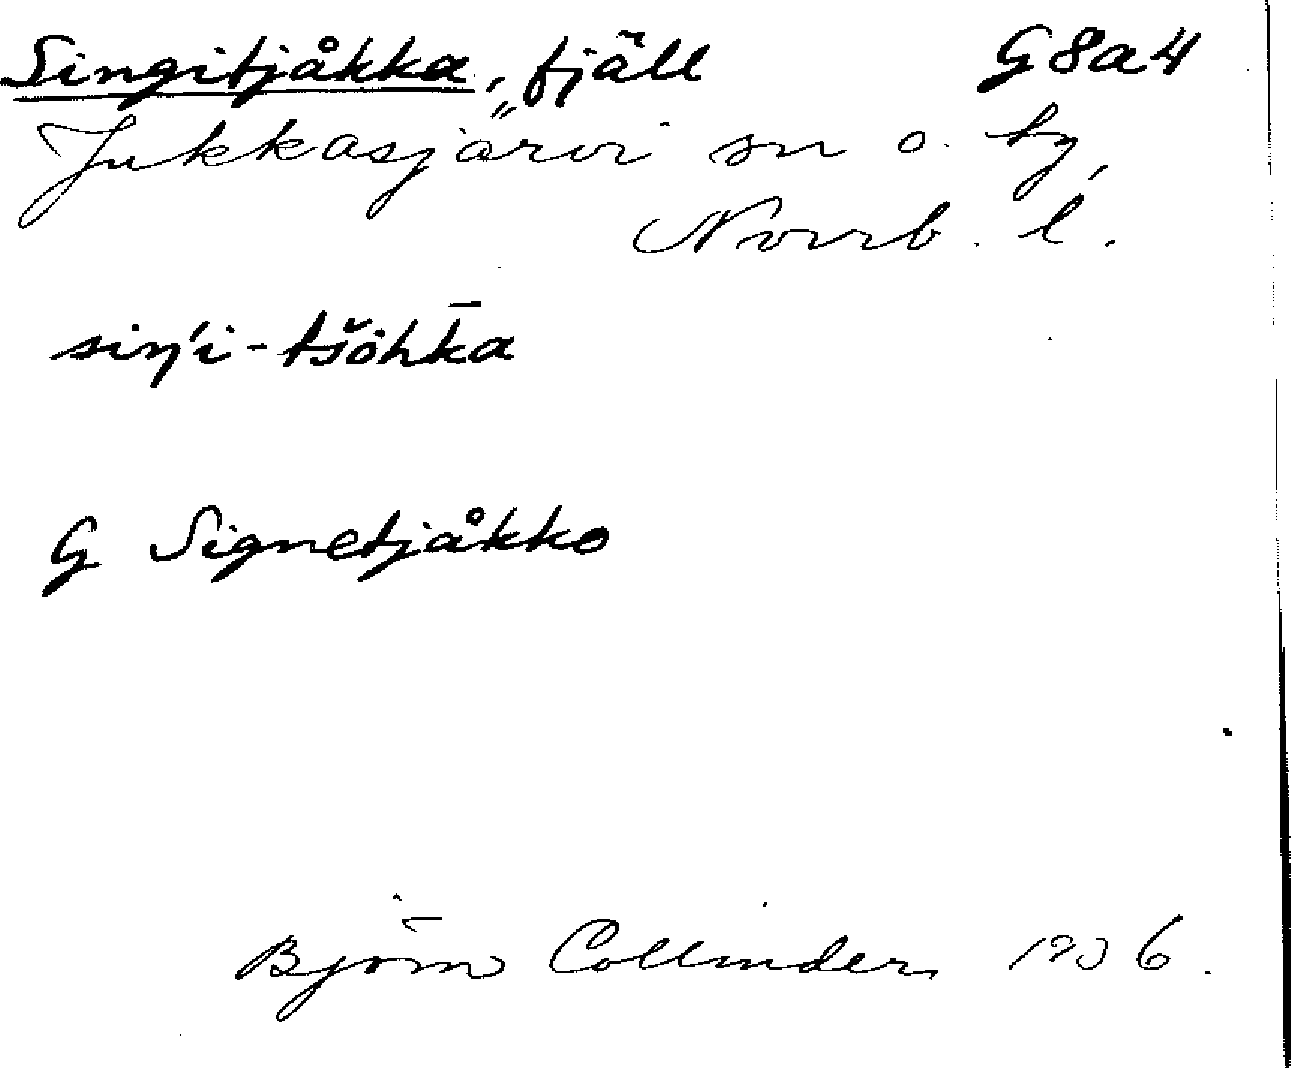 Singitjåkka, fjäll G8a4
Jukkasjärvi sn o. tg,
Norrb. l.
siŋ'i-tšöhk̄a
G Signetjåkko
Björn Collinder 1936.